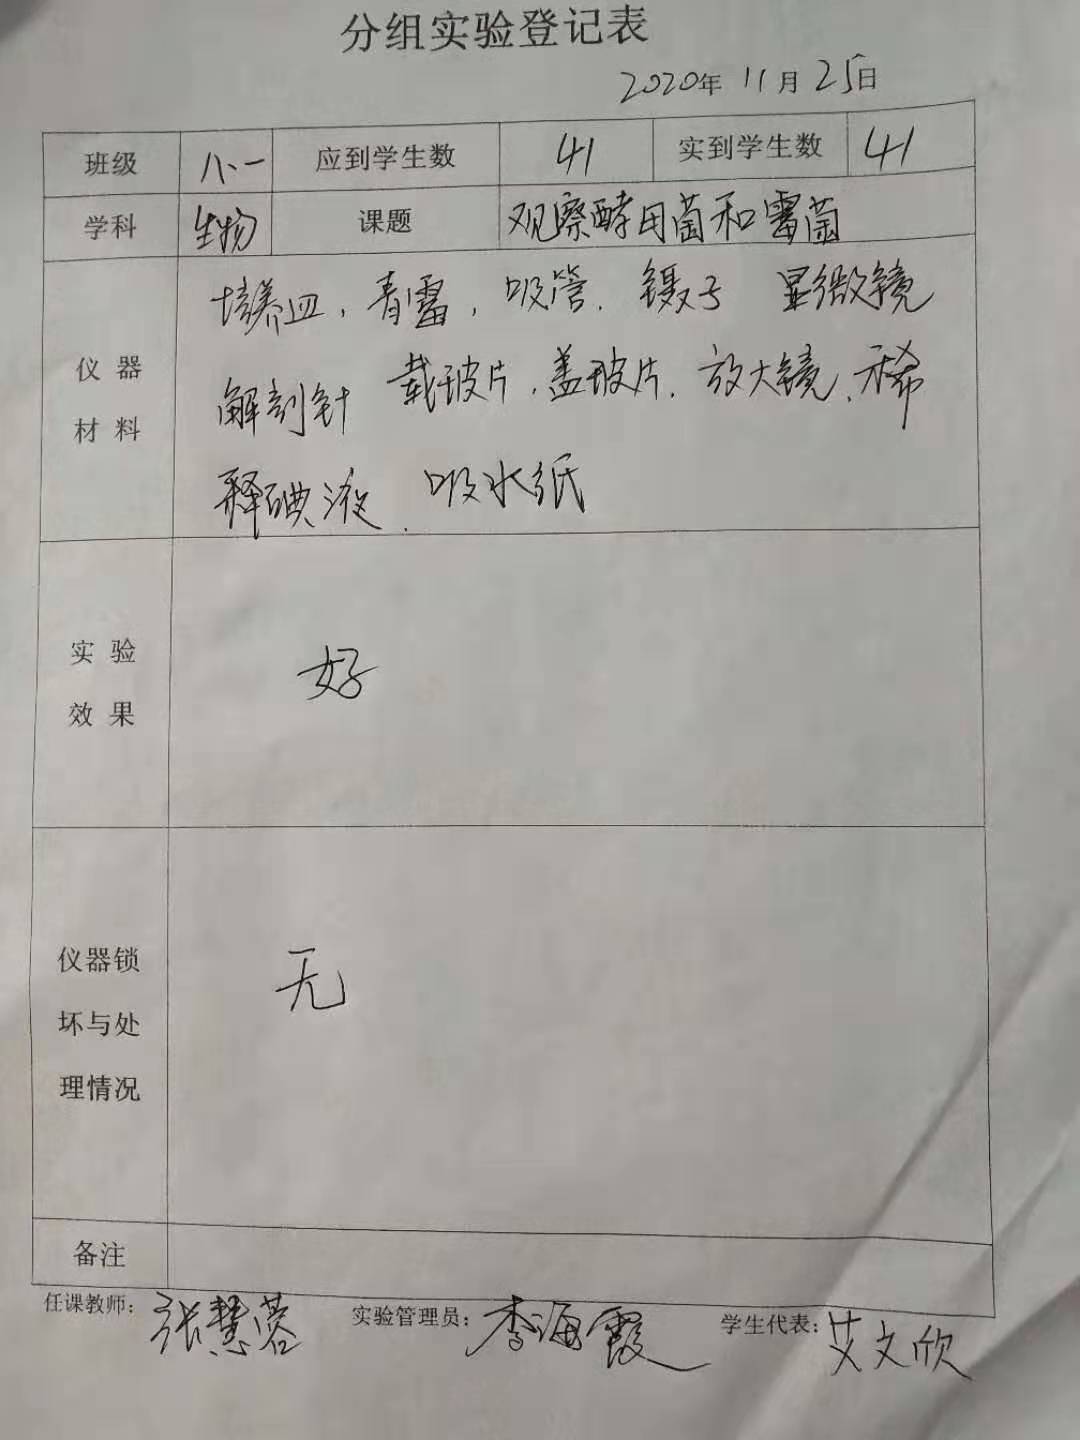 分组实验登记表
2020年 11月 25日
班级 八.一 应到学生数 41 实到学生数 41
学科 生物 课题 观察酵母菌和霉菌
培养皿，青霉，吸管．镊子 显微镜
仪器
解剖针 载玻片．盖玻片．放大镜．稀
材料
释碘液．吸水纸
实验
好
效果
仪器锁
无
坏与处
理情况
备注
任课教师：张慧蓉 实验管理员：李海霞 学生代表：艾文欣